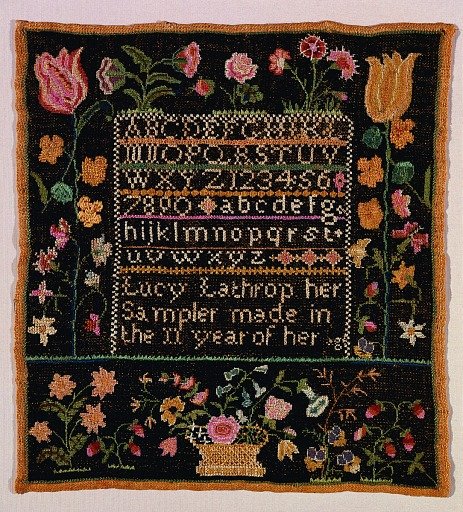 ABCDEFGHIKL
MNOPQRSTUV
WXYZ123456
7890abcdefg
hijklmnopqrst
uvwxyz
Lucy Lathrop her
Sampler made in
the 11 year of her